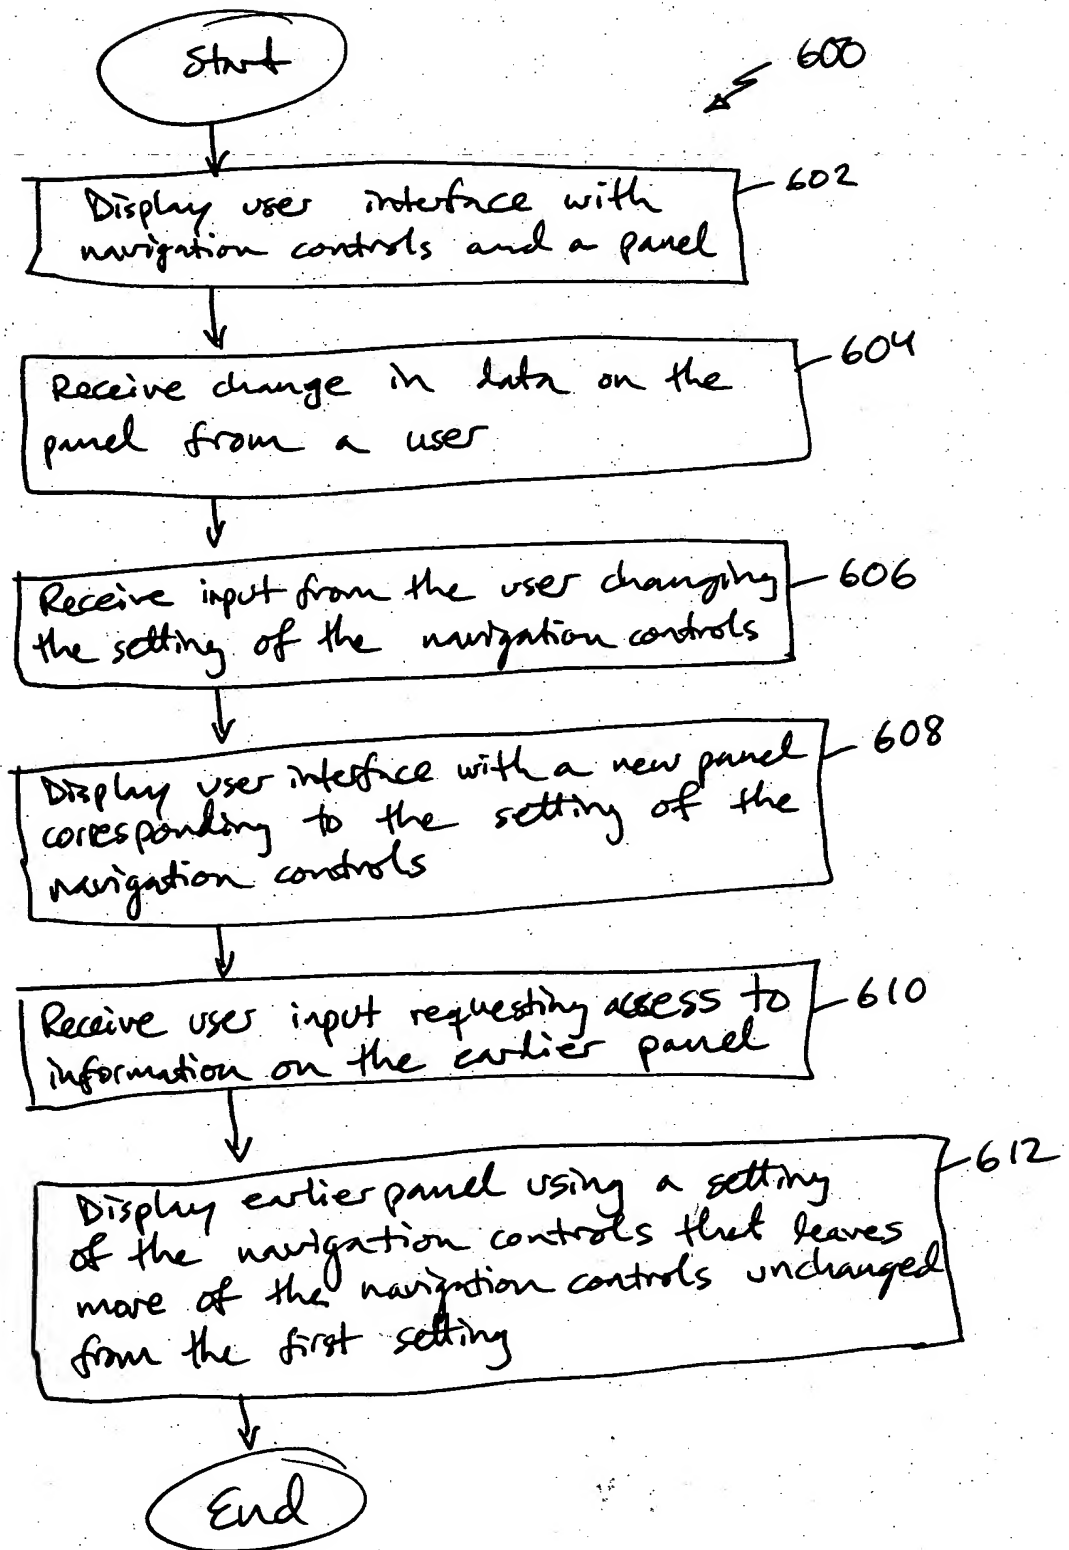 Start
600
Display user interface with
navigation controls and a panel
602
Receive change in data on the
panel from a user
604
Receive input from the user changing
the setting of the navigation controls
606
Display user interface with a new panel
corresponding to the setting of the
navigation controls
608
Receive user input requesting access to
information on the earlier panel
610
Display earlier panel using a setting
of the navigation controls that leaves
more of the navigation controls unchanged
from the first setting
612
End